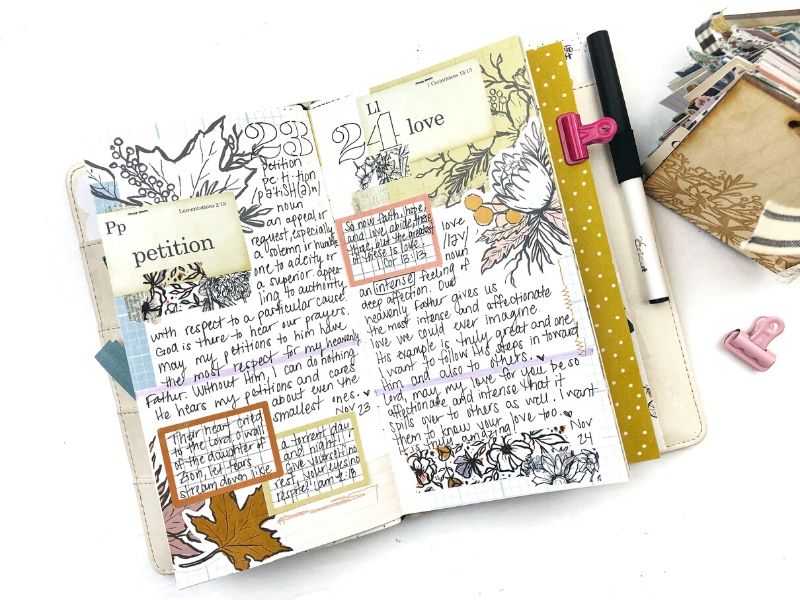 23
Pp
Lamentations 2:18
petition
petition
pe·ti·tion
/pəˈtiSH(ə)n/
noun
an appeal or
request, especially
a solemn or humble
one to a deity or
a superior. appea-
ling to authority
with respect to a particular cause.
God is there to hear our prayers.
May my petitions to Him have
the most respect for my heavenly
Father. Without Him, I can do nothing
He hears my petitions and cares
about even the
smallest ones.
Nov 23
Their heart cried
to the Lord. O wall
of the daughter of
Zion, let tears
stream down like
a torrent day
and night!
Give yourself no
rest, your eyes no
respite! Lam 2:18
24
Ll
1 Corinthians 13:13
love
So now faith, hope,
and love abide, these
three, but the greatest
of these is love.
1 Cor 13:13
love
/ləv/
noun
an intense feeling of
deep affection. Our
heavenly Father gives us
the most intense and affectionate
love we could ever imagine.
His example is truly great and one
I want to follow His steps in toward
Him and also to others.
Lord, may my love for you be so
affectionate and intense that it
spills over to others as well. I want
them to know your love too.
truly amazing love
Nov
24